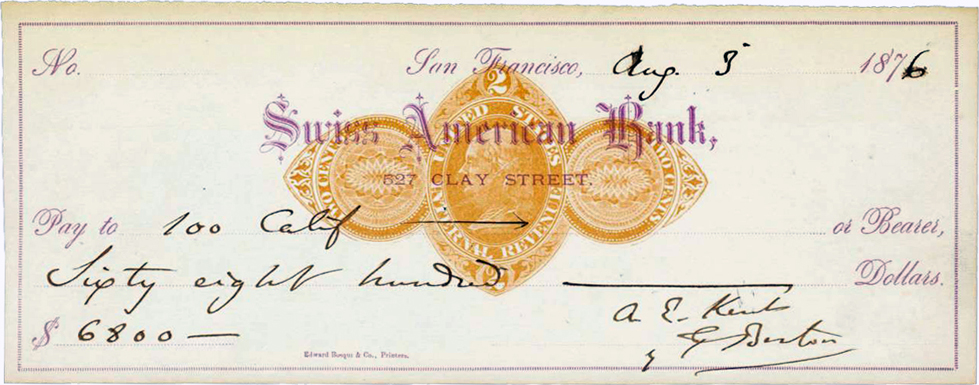 No. San Francisco, Aug. 3 1876
Swiss American Bank,
527 CLAY STREET.
2
UNITED STATES
INTERNAL REVENUE
TWO CENTS
TWO CENTS
2
Pay to 100 Calif or Bearer,
Sixty eight hundred Dollars.
$ 6800
A. E. Kent
Edward Bosqui & Co., Printers.